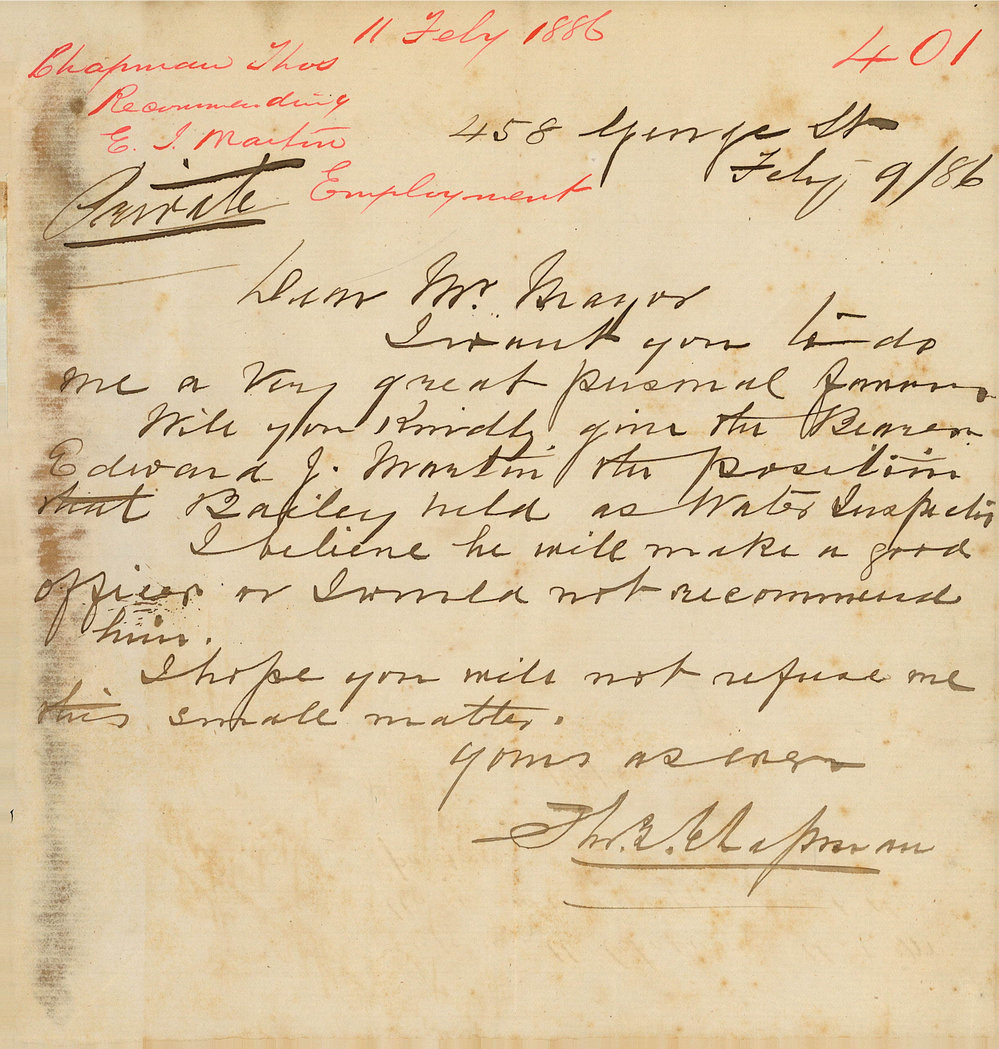 11 Feby 1886
401
Chapman Thos
Recommending
E. J. Martin
Employment
458 George St
Feby 9/86
Private
Dear Mr. Mayor
I want you to do
me a very great personal favour
Will you Kindly give the Bearer
Edward J. Martin the position
that Bailey held as Water Inspector
I believe he will make a good
officer or I would not recommend
him.
I hope you will not refuse me
this small matter.
Yours as ever
Thos. Chapman